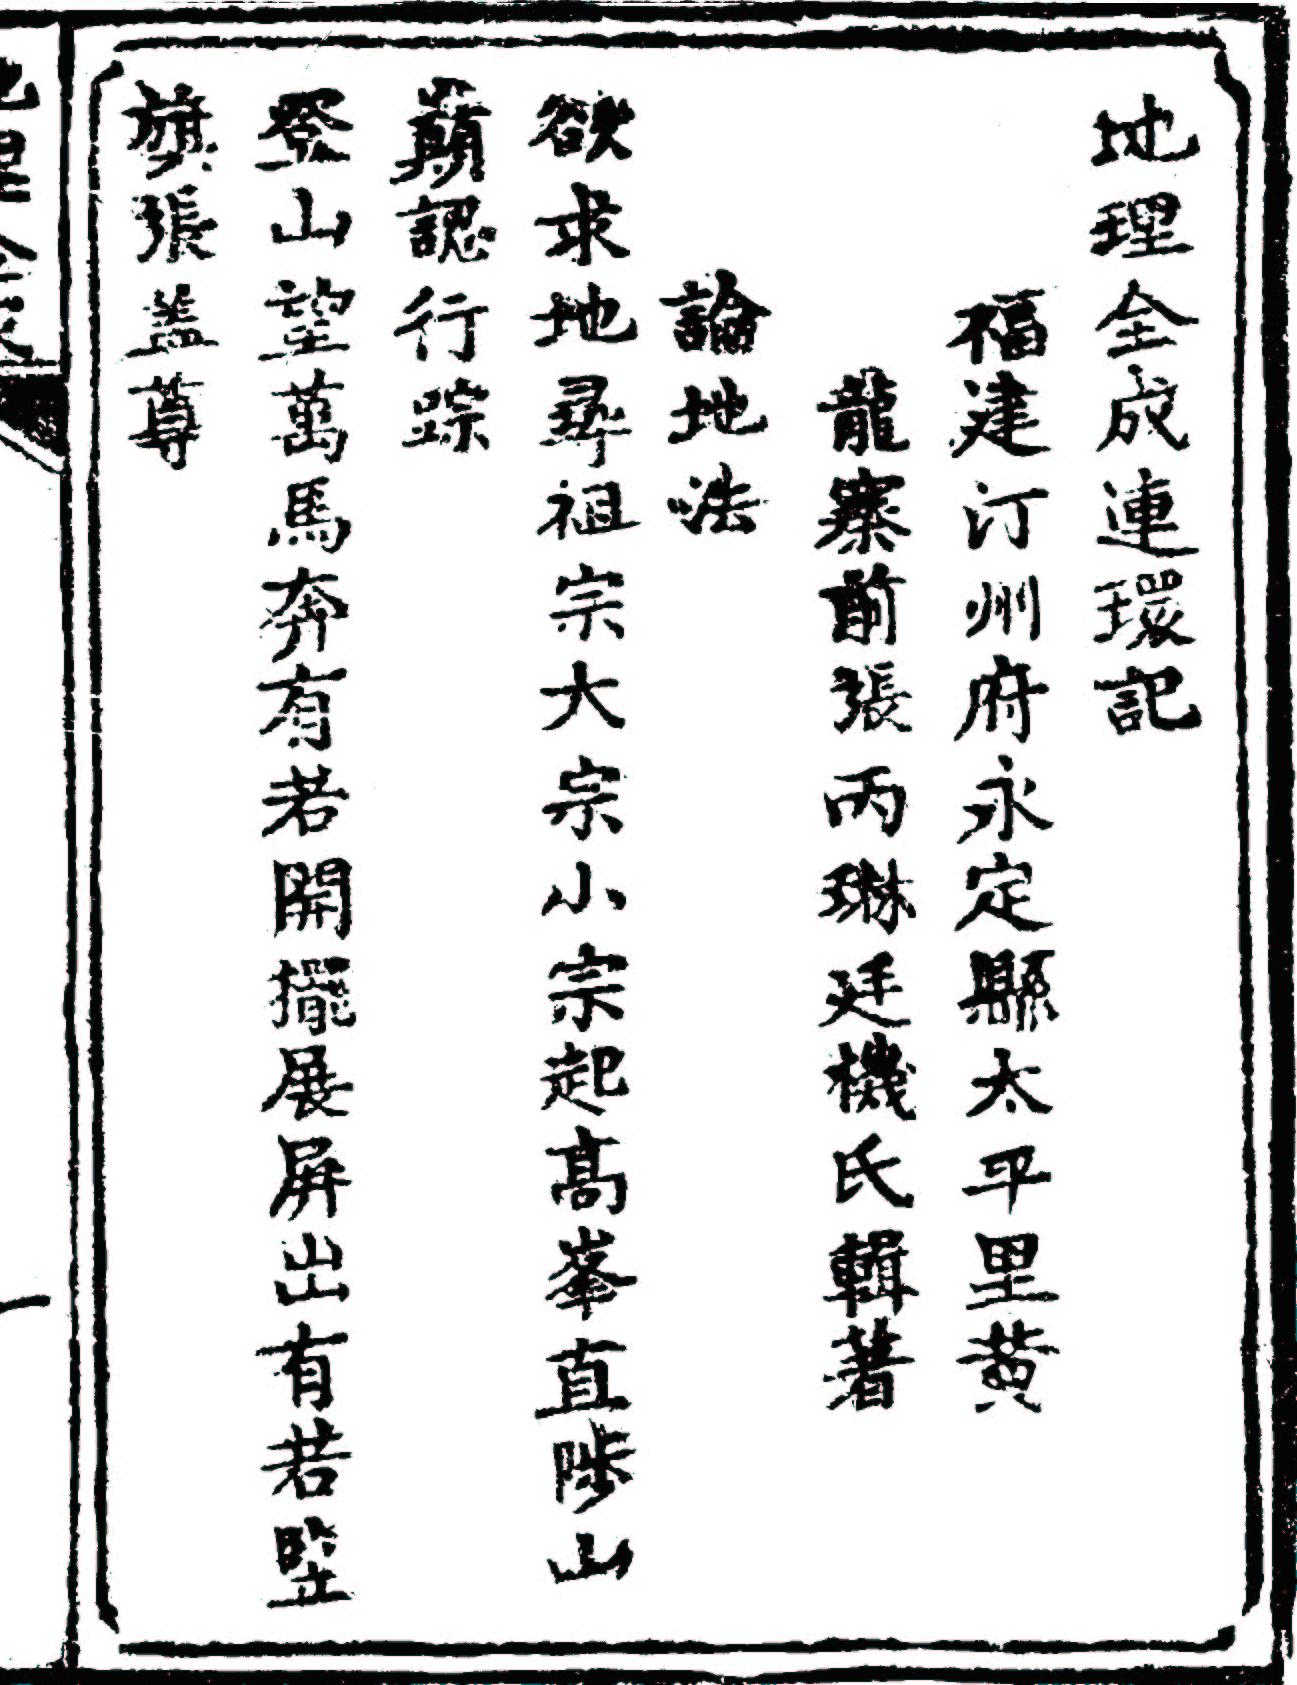 地理全成連環記
福建汀州府永定縣太平里黃
龍寨前張丙琳廷機氏輯著
論地法
欲求地尋祖宗大宗小宗起高峯直陟山
巔認行踪
登山望萬馬奔有若開擺展屏出有若竪
旗張盖尊
地理全
一